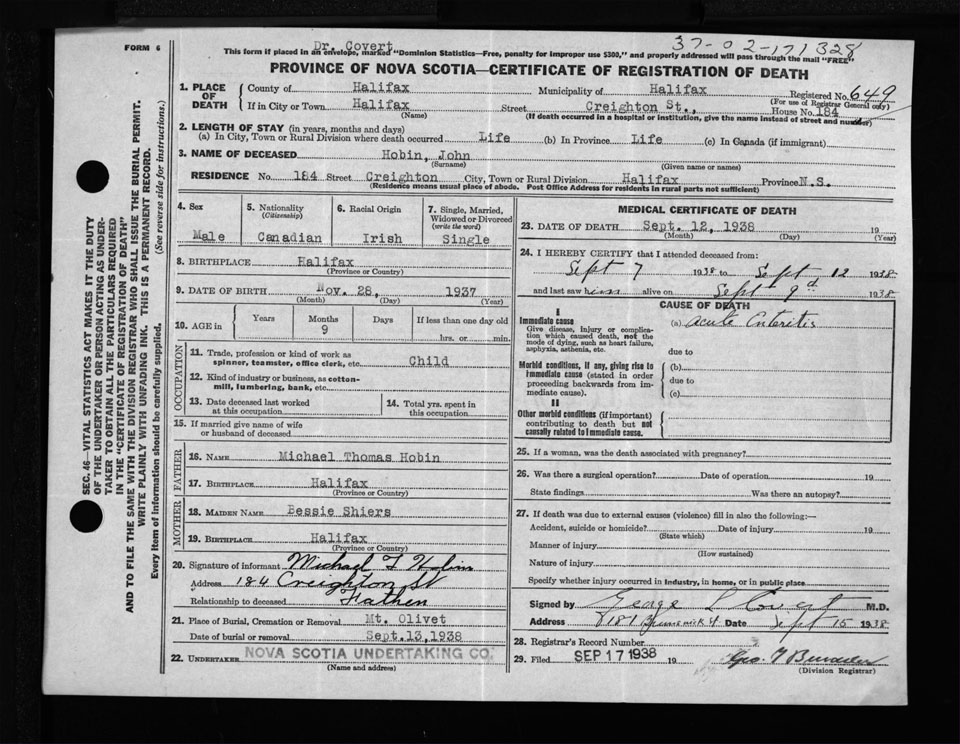 FORM 6
Dr. Covert
37-02-171328
This form if placed in an envelope, marked "Dominion Statistics—Free, penalty for improper use $300," and properly addressed will pass through the mail "FREE"
PROVINCE OF NOVA SCOTIA—CERTIFICATE OF REGISTRATION OF DEATH
1. PLACE OF DEATH
County of Halifax Municipality of Halifax Registered No. 649
(For use of Registrar General only)
If in City or Town Halifax Street Creighton St., House No. 184
(Name) (If death occurred in a hospital or institution, give the name instead of street and number)
2. LENGTH OF STAY (in years, months and days)
(a) In City, Town or Rural Division where death occurred Life (b) In Province Life (c) In Canada (if immigrant)
3. NAME OF DECEASED Hobin, John
(Surname) (Given name or names)
RESIDENCE No. 184 Street Creighton City, Town or Rural Division Halifax Province N.S.
(Residence means usual place of abode. Post Office Address for residents in rural parts not sufficient)
4. Sex
Male
5. Nationality
(Citizenship)
Canadian
6. Racial Origin
Irish
7. Single, Married,
Widowed or Divorced
(write the word)
Single
8. BIRTHPLACE Halifax
(Province or Country)
9. DATE OF BIRTH Nov. 28, 1937
(Month) (Day) (Year)
10. AGE in
Years Months Days If less than one day old
9
hrs. or min.
OCCUPATION
11. Trade, profession or kind of work as
spinner, teamster, office clerk, etc. Child
12. Kind of industry or business, as cotton-
mill, lumbering, bank, etc.
13. Date deceased last worked
at this occupation
14. Total yrs. spent in
this occupation
15. If married give name of wife
or husband of deceased
FATHER
16. NAME Michael Thomas Hobin
17. BIRTHPLACE Halifax
(Province or Country)
MOTHER
18. MAIDEN NAME Bessie Shiers
19. BIRTHPLACE Halifax
(Province or Country)
20. Signature of informant Michael T Hobin
Address 184 Creighton St
Relationship to deceased Father
21. Place of Burial, Cremation or Removal Mt. Olivet
Date of burial or removal Sept.13,1938
22. UNDERTAKER NOVA SCOTIA UNDERTAKING CO.
(Name and address)
MEDICAL CERTIFICATE OF DEATH
23. DATE OF DEATH Sept. 12, 1938 19
(Month) (Day) (Year)
24. I HEREBY CERTIFY that I attended deceased from:
Sept 7 1938 to Sept 12 1938
and last saw him alive on Sept 9th 1938
CAUSE OF DEATH
I
Immediate cause
Give disease, injury or complica-
tion which caused death, not the
mode of dying, such as heart failure,
asphyxia, asthenia, etc.
(a) Acute Enteritis
due to
Morbid conditions, if any, giving rise to
immediate cause (stated in order
proceeding backwards from im-
mediate cause).
(b)
due to
(c)
II
Other morbid conditions (if important)
contributing to death but not
causally related to immediate cause.
25. If a woman, was the death associated with pregnancy?
26. Was there a surgical operation? Date of operation 19
State findings Was there an autopsy?
27. If death was due to external causes (violence) fill in also the following:—
Accident, suicide or homicide? Date of injury 19
(State which)
Manner of injury
(How sustained)
Nature of injury
Specify whether injury occurred in industry, in home, or in public place
Signed by George L Covert M.D.
Address Brunswick St Date Sept 15 1938
28. Registrar's Record Number
29. Filed SEP 17 1938 19
(Division Registrar)
SEC. 46—VITAL STATISTICS ACT MAKES IT THE DUTY
OF THE UNDERTAKER OR PERSON ACTING AS UNDER-
TAKER TO OBTAIN ALL THE PARTICULARS REQUIRED
IN THE "CERTIFICATE OF REGISTRATION OF DEATH"
AND TO FILE THE SAME WITH THE DIVISION REGISTRAR WHO SHALL ISSUE THE BURIAL PERMIT.
WRITE PLAINLY WITH UNFADING INK. THIS IS A PERMANENT RECORD.
Every item of information should be carefully supplied. (See reverse side for instructions.)